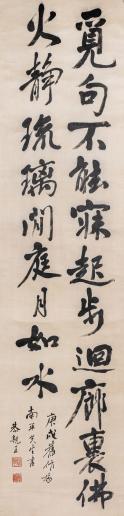 覓句不能寐起步迴廊裏佛
火靜琉璃閒庭月如水
庚戌舊作為
南平先生書
恭親王